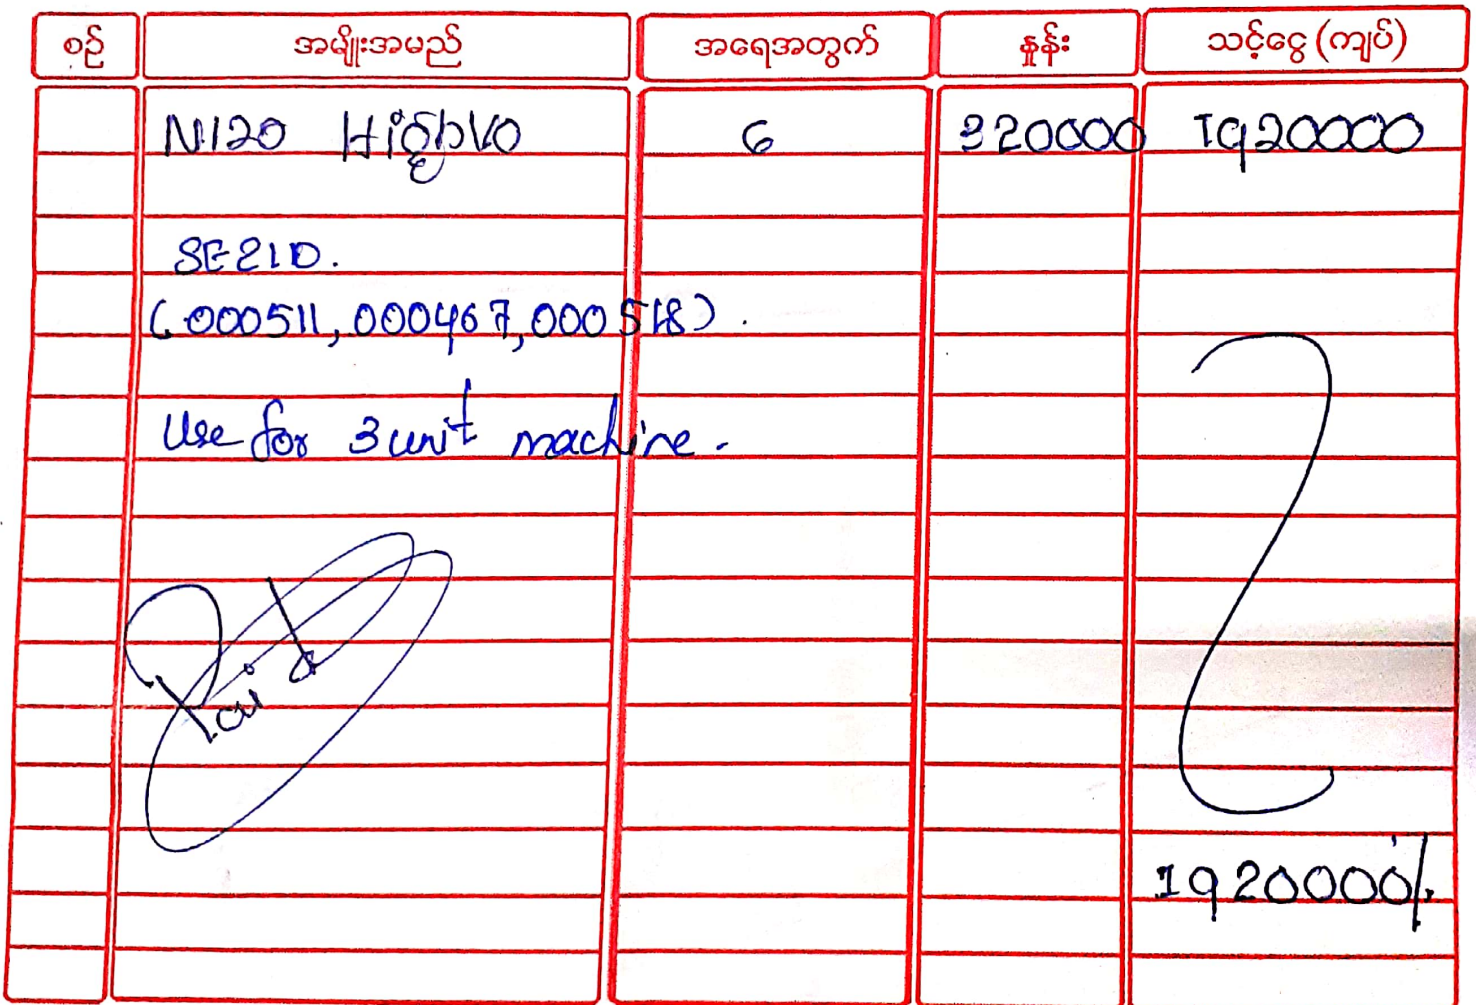 စဉ် အမျိုးအမည် အရေအတွက် နှုန်း သင့်ငွေ (ကျပ်)
N120 6 320000 1920000
SE21D.
(000511,000467,000518).
Use for 3 unit machine.
Paid
1920000/.